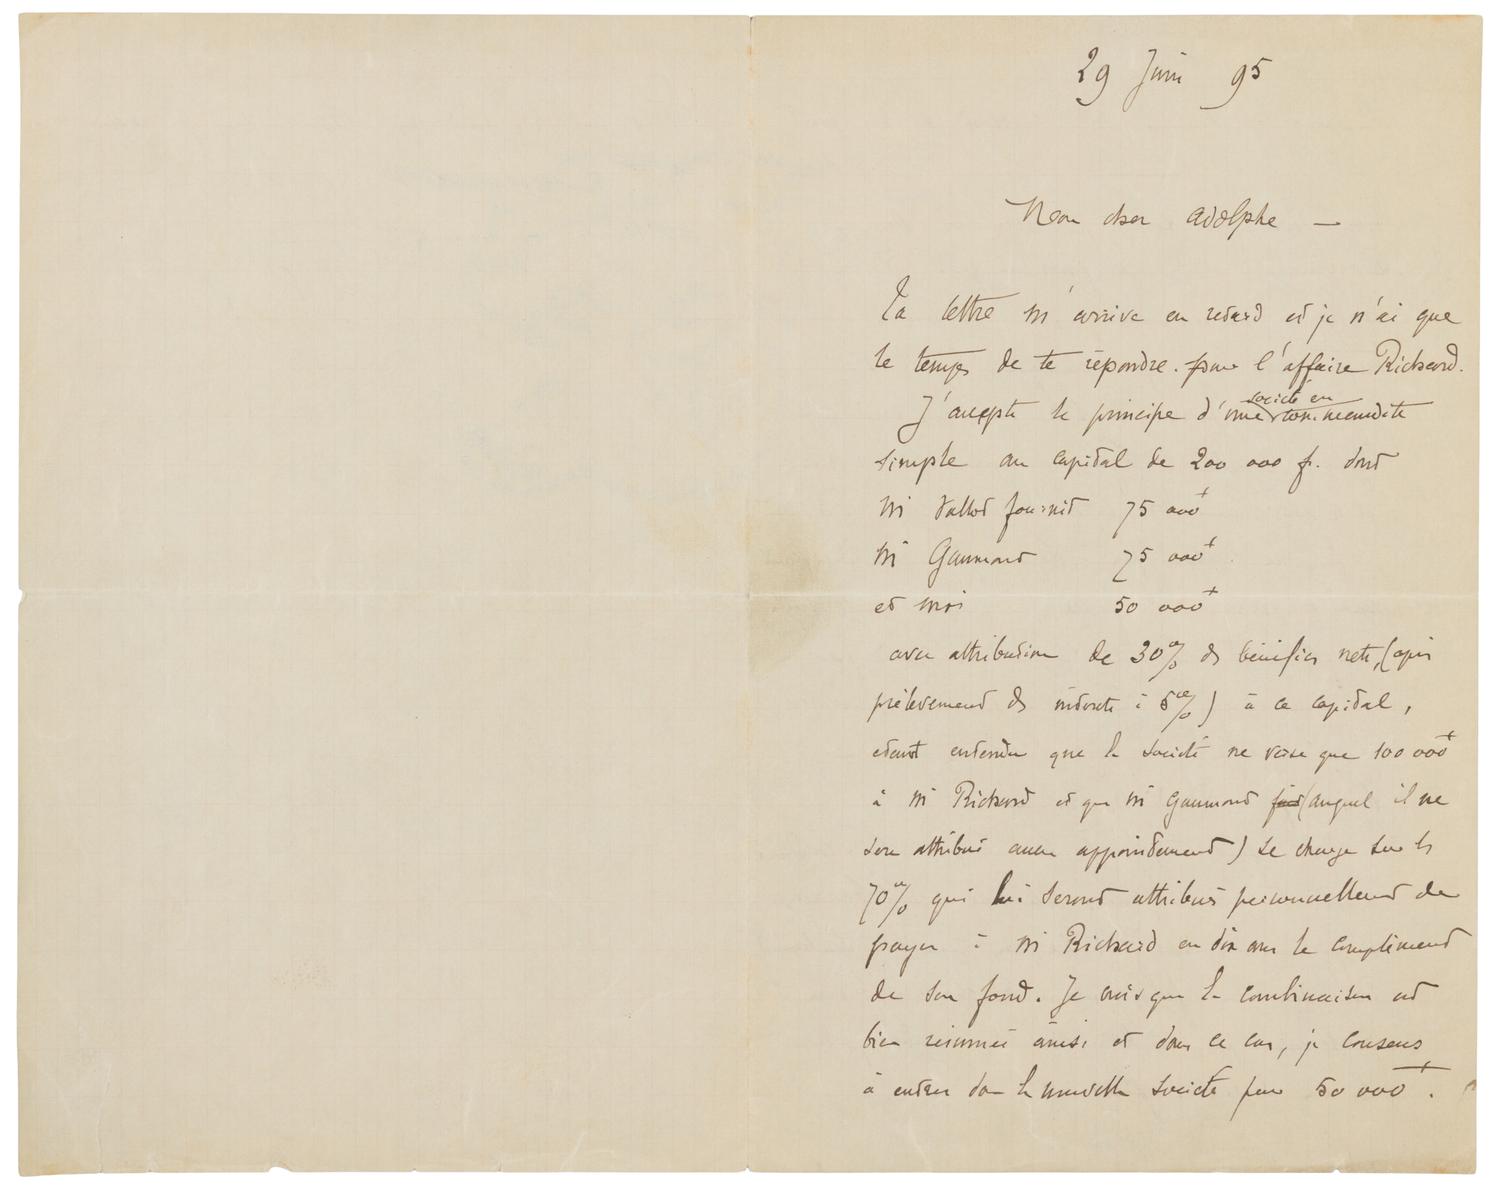 29 Juin 95
Mon cher Adolphe —
Ta lettre m'arrive en retard et je n'ai que
le temps de te répondre. pour l'affaire Richard.
J'accepte le principe d'une société en commandite
simple au capital de 200 000 f. dont
M Vallot fournit 75 000f
M Gaumont 75 000f
et moi 50 000f
avec attribution de 30% des bénéfices nets, (après
prélèvement des intérêts à 5%) à ce capital,
étant entendu que la société ne verse que 100 000f
à M Richard et que M Gaumont (auquel il ne
sera attribué aucun appointement) se charge sur les
70% qui lui seront attribués personnellement de
payer à M Richard en dix ans le complément
de son fond. Je crois que la combinaison est
bien résumée ainsi et dans ce cas, je consens
à entrer dans la nouvelle société pour 50 000f.